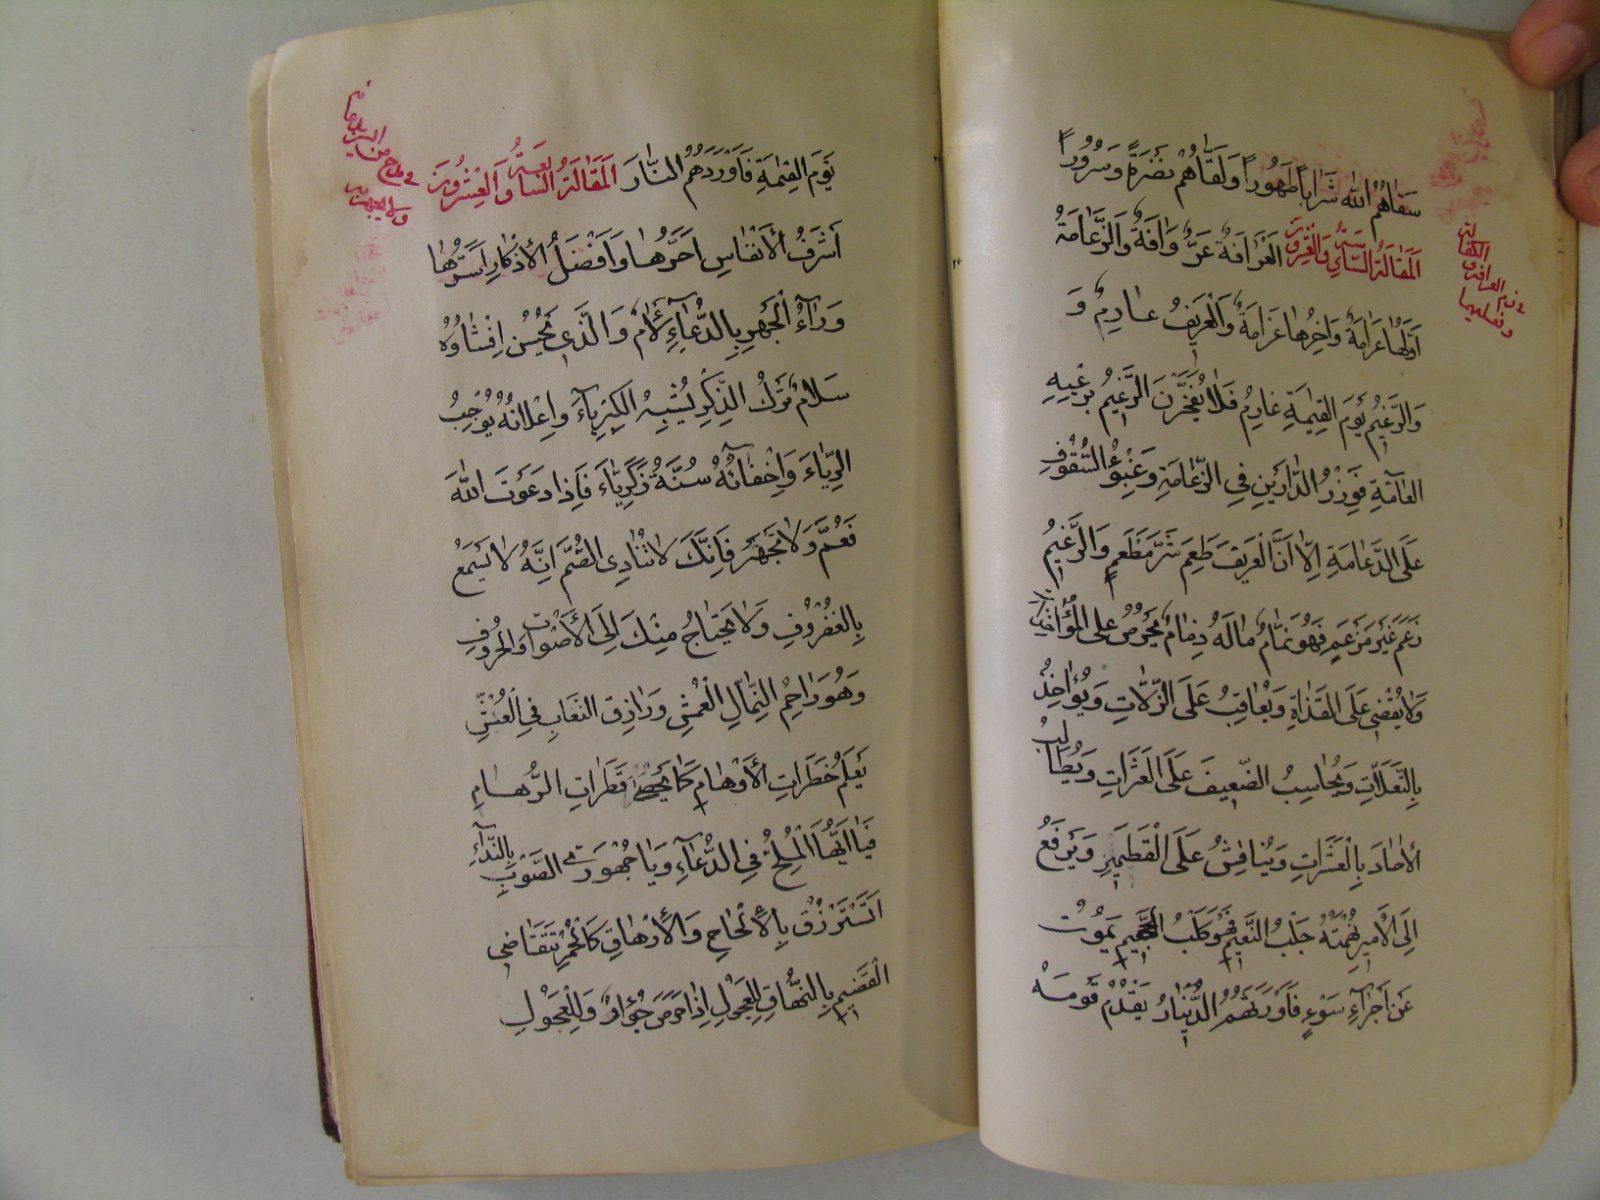 سَقٰاهُمُ اللّٰه شَرٰاباً طَهُوراً وَلَقّٰاهُمْ نَضْرَةً وَسُرُوراً
المَقٰالَةُ السّٰادِسَةُ وَالْعِشْرُونَ العَرٰافَةُ عَرٌّ وَاٰفَةٌ وَالزَّعٰامَةُ
اَوَّلُهٰا عَرٰامَةٌ وَاٰخِرُهٰا غَرٰامَةٌ وَالْعَرِيفُ عٰادِمٌ وَ
وَالزَّعِيمُ يَوْمَ القِيٰمَةِ غٰارِمٌ فَلاٰ يَفْخَرَنَّ الزَّعِيمُ بِرَغْبَةِ
العٰامَّةِ فَوِزْرُ الدّٰارَيْنِ فِي الزَّعٰامَةِ وَعِبْءُ السُّقُوفِ
عَلَى الدَّعٰامَةِ اِلّاٰ اَنَّ الْعَرِيفَ طَعِمَ شَرَّ مَطْعَمٍ وَالزَّعِيمُ
زَعَمَ غَيْرَ مَزْعَمٍ فَهُوَ نَمّٰامٌ مٰا لَهُ ذِمٰامٌ يَحْرِصُ عَلَى الْمُؤٰاخَذٰاتِ
وَلاٰ يُغْضِي عَلَى القَذٰاةِ وَيُعٰاقِبُ عَلَى الزَّلاّٰتِ وَيُؤٰاخِذُ
بِالتَّعِلاّٰتِ وَيُحٰاسِبُ الضَّعِيفَ عَلَى العَثَرٰاتِ وَيُطٰالِبُ
الاٰحٰادَ بِالْعَشَرٰاتِ وَيُنٰاقِشُ عَلَى الْقَطْمِيرِ وَيَرْفَعُ
اِلَى الأَمِيرِ نُهْمَتُهُ جَلْبُ النَّعِيمِ فَهُوَ كَلْبُ الجَحِيمِ يَمُوتُ
عَنْ اَجْرٰاءِ سَوْءٍ فَاَوْرَثَهُمُ الدِّينٰارَ يَقْدُمُ قَوْمَهُ
في ذم العرافة و الكفالة
يَوْمَ القِيٰمَةِ فَاَوْرَدَهُمُ النّٰارَ المَقٰالَةُ السّٰابِعَةُ وَالْعِشْرُونَ
اَشْرَفُ الأَنْفٰاسِ اَحَرُّهٰا وَاَفْضَلُ الأَذْكٰارِ اَسَرُّهٰا
وَرٰاءَ الْجَهْرِ بِالدُّعٰاءِ لَأٰمٌ وَالَّذِى يَحْسُنُ اِفْشٰاؤُهُ
سَلاٰمٌ تَرْكُ الذِّكْرِ يُشْبِهُ الكِبْرِيٰاءَ وَاِعْلاٰنُهُ يُوْجِبُ
الرِّيٰاءَ وَاِخْفٰائُهُ سُنَّةُ زَكَرِيّٰاءَ فَاِذٰا دَعَوْتَ اللّٰهَ
فَعُمَّ وَلاٰ تَجْهَرْ فَاِنَّكَ لاٰ تُنٰادِى الصُّمَّ اِنَّهُ لاٰ يَسْمَعُ
بِالغُضْرُوفِ وَلاٰ يَحْتٰاجُ مِنْكَ اِلَى الأَصْوٰاتِ وَالحُرُوفِ
وَهُوَ رٰاحِمُ النِّمٰالِ الْعُمْشِ وَرٰازِقُ النَّعّٰابِ فِي الْعُشِّ
يَعْلَمُ خَطَرٰاتِ الأَوْهٰامِ كَمٰا يُحْصِي قَطَرٰاتِ الرِّهٰامِ
فَيٰا اَيُّهَا الْمُلِحُّ فِي الدُّعٰاءِ وَيٰا جُمْهُورِيَّ الصَّوْتِ بِالنِّدٰاءِ
اَتَسْتَرْزِقُ بِالأَلْحٰاحِ وَالأَرْهٰاقِ كَالْحُمُرِ تَتَقٰاضٰى
الْقَضِيمَ بِالنُّهٰاقِ لِلعُجُولِ اِذٰا حَرَصَ جُؤٰارٌ وَلِلْعَجُولِ